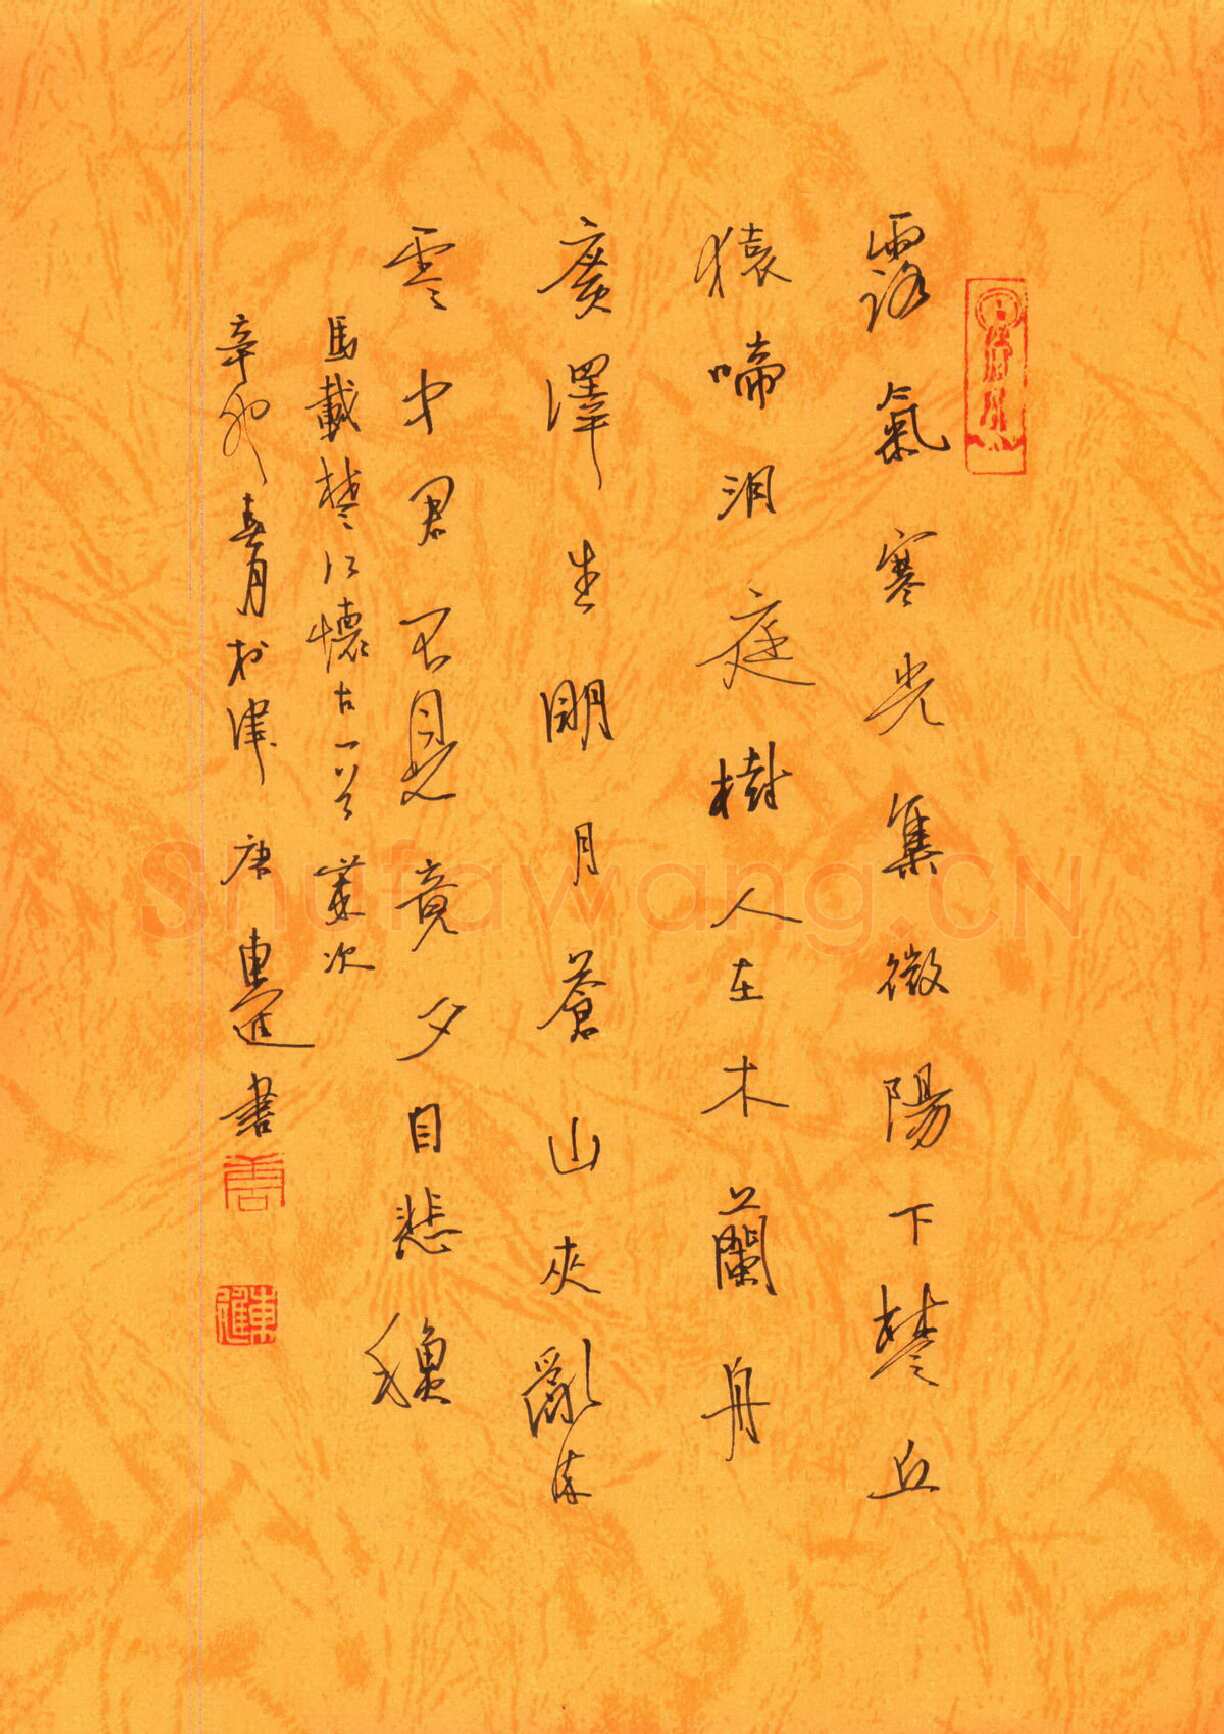 露氣寒光集微陽下楚丘
猿啼洞庭樹人在木蘭舟
廣澤生朙月蒼山夾亂流
雲中君不見竟夕自悲穐
馬載楚江懷古一首歲次
辛卯春月於津唐東進書
Shufawang.CN